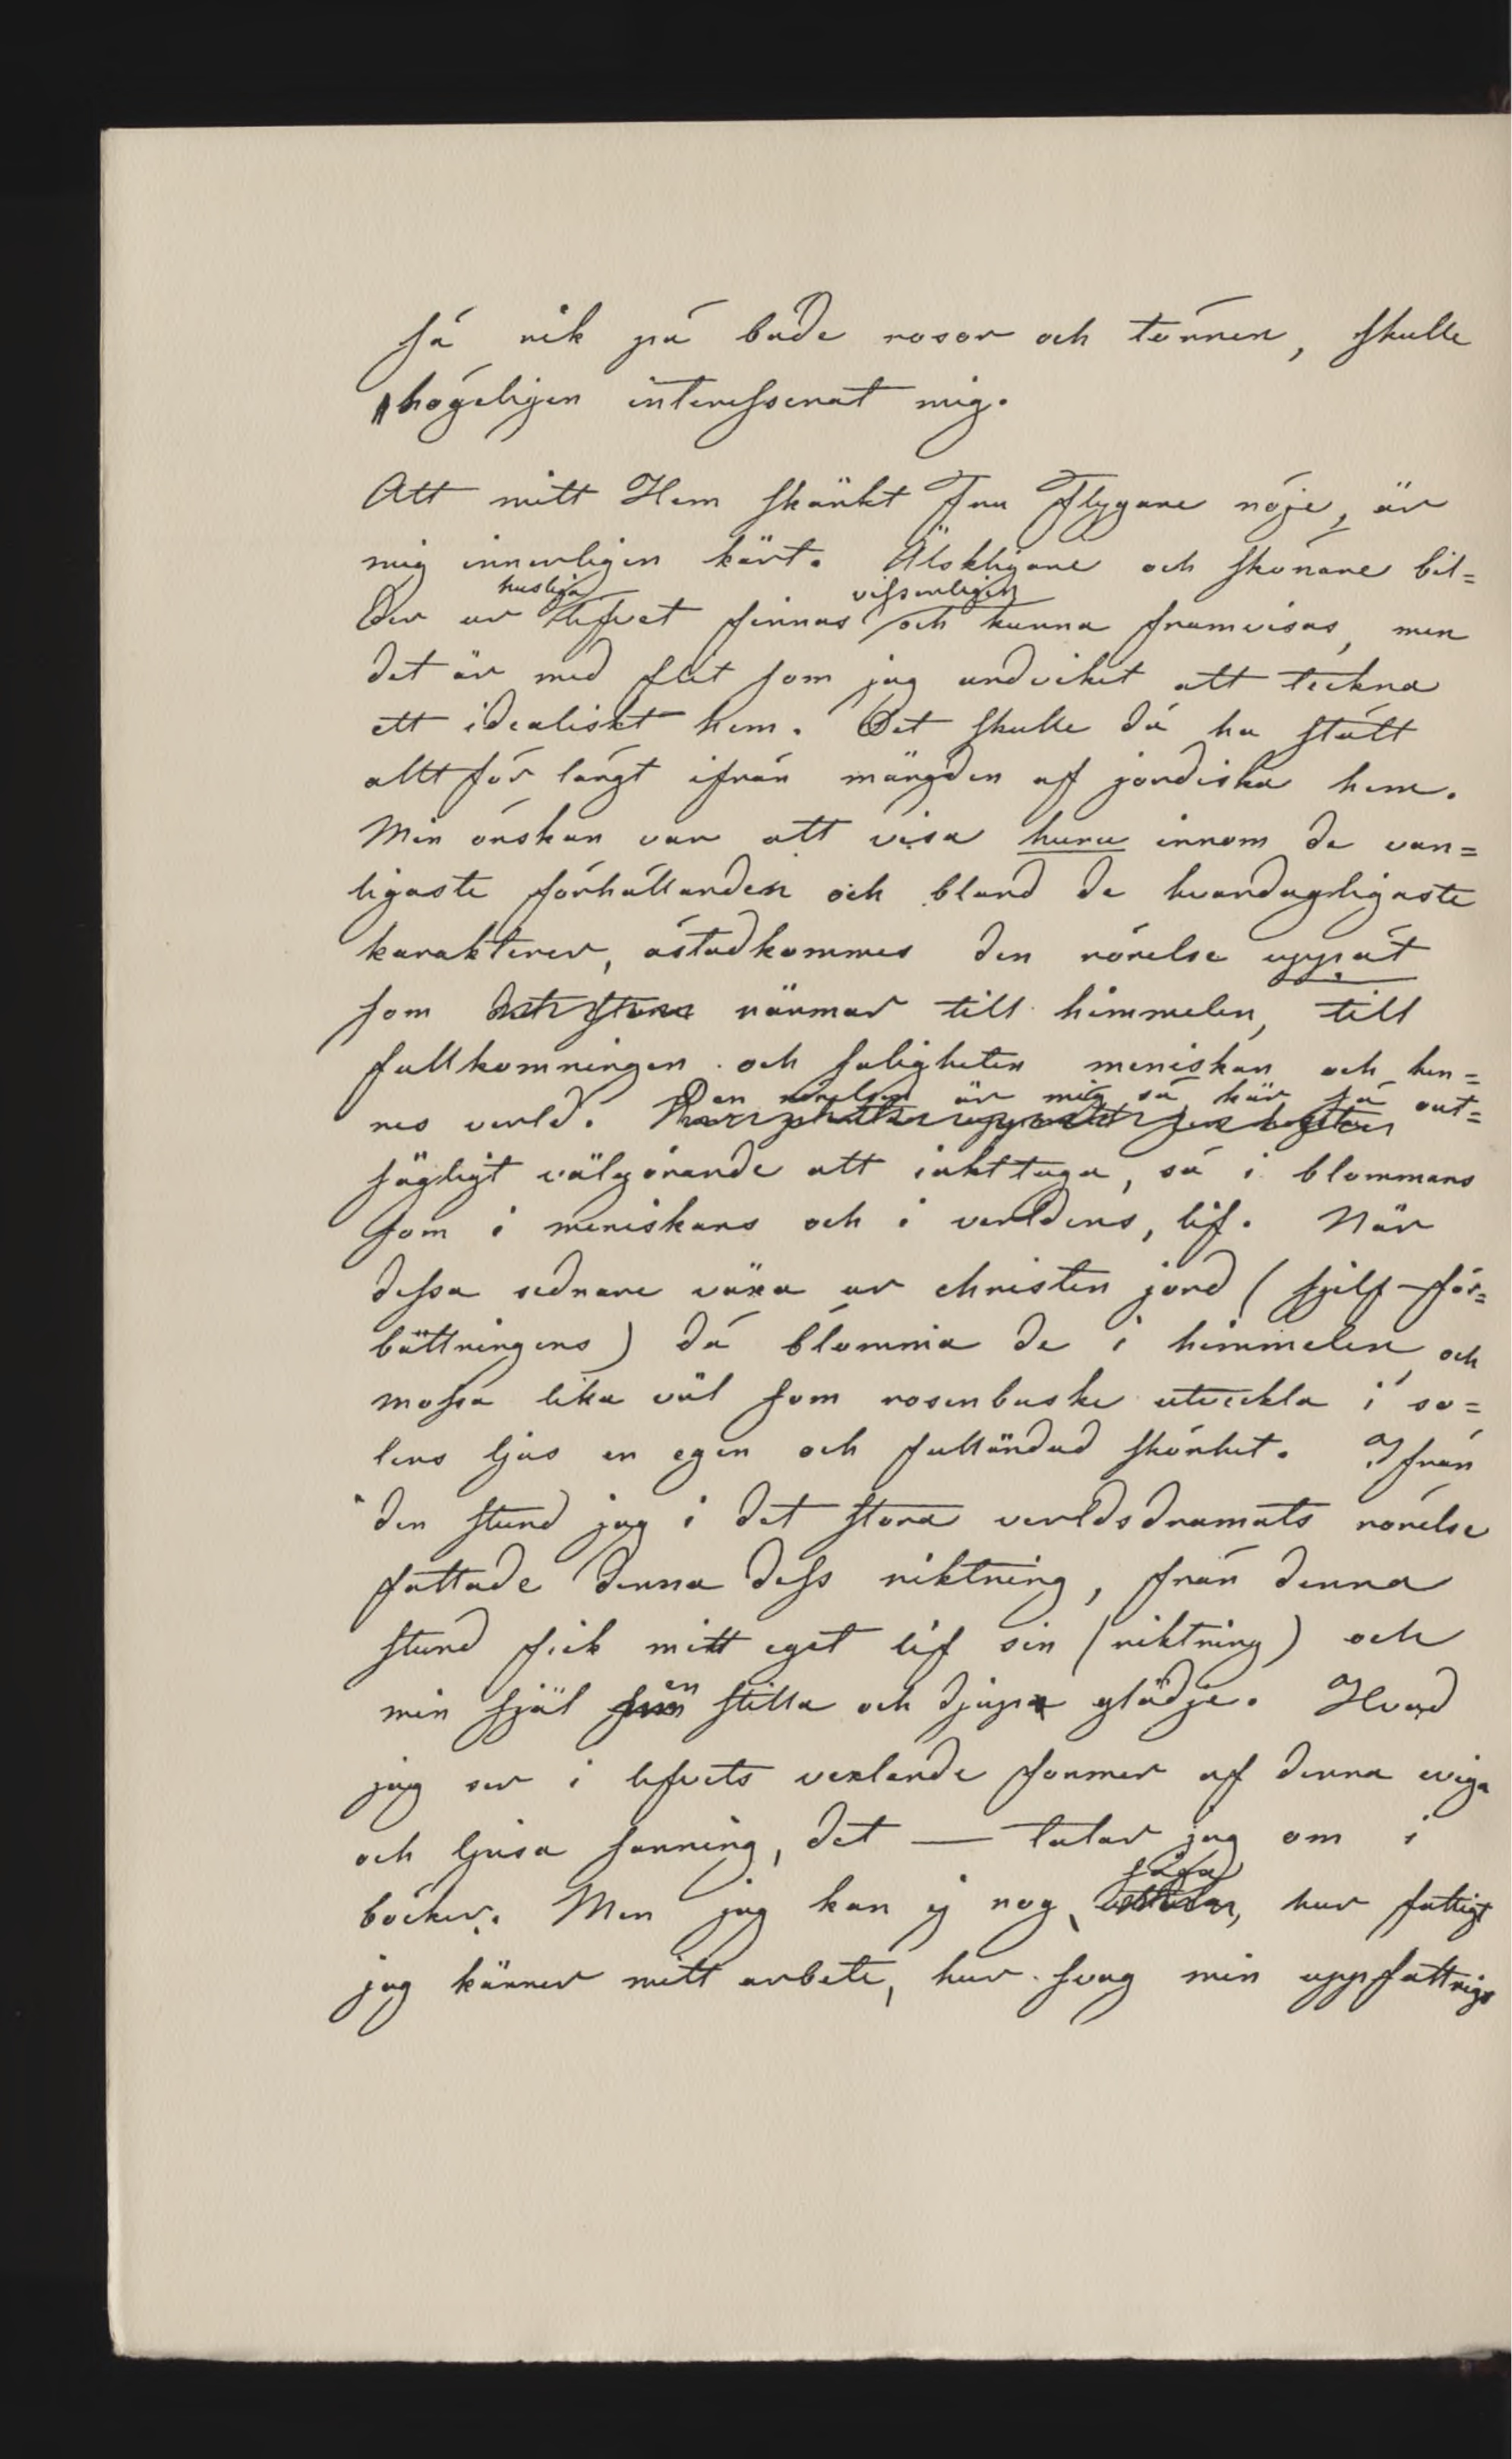 så rik på både rosor och törnen, skulle
högeligen interesserat mig.
Att mitt Hem skänkt Fru Flygare nöje, är
mig innerligen kärt. Älskligare och skönare bil=
husliga vissenligen
der ur lifvet finnas och kunna framvisas, men
det är med flit som jag undvikit att teckna
ett idealiskt hem. Det skulle då ha stått
allt för långt ifrån mängden af jordiska hem.
Min önskan var att visa huru innom de van=
ligaste förhållanden och bland de hvardagligaste
karakterer, åstadkommes den rörelse uppåt
som närmar till himmelen, till
fullkomningen och saligheten meniskan och hen=
Den rörelsen är mig så kär så out=
nes verld.
sägligt välgörande att iakttaga, så i blommans
som i meniskans och i verldens, lif. När
dessa sednare växa ur christen jord (sjelf-för=
bättringens) då blomma de i himmelen, och
mossa lika väl som rosenbuske utveckla i so=
lens ljus en egen och fulländad skönhet. Ifrån
den stund jag i det stora verldsdramats rörelse
fattade denna dess riktning, från denna
stund fick mitt eget lif sin (riktning) och
en
min själ sin stilla och djupa glädje. Hvad
jag ser i lifvets vexlande former af denna eviga
och ljusa sanning, det — talar jag om i
säga
böcker. Men jag kan ej nog, hur fattigt
jag känner mitt arbete, hur svag min uppfattnigs